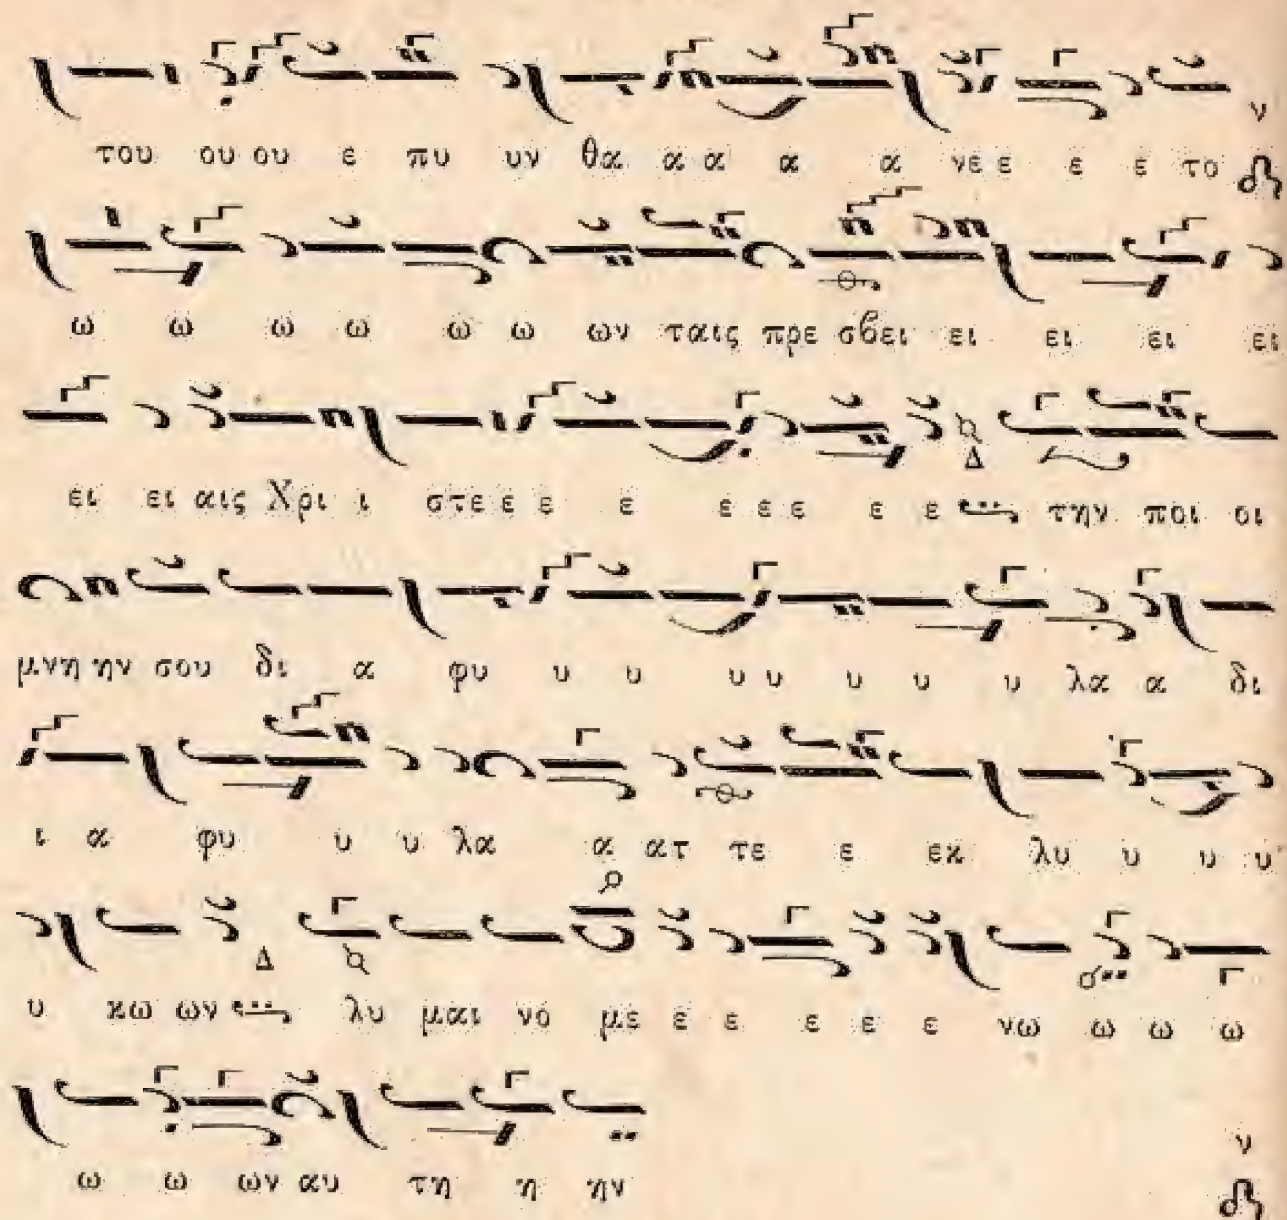 του ου ου ε πυ υν θα α α α α νε ε ε ε το ν
ω ω ω ω ω ω ων ταις πρε σβει ει ει ει ει
ει ει αις Χρι ι στε ε ε ε ε ε ε ε ε Δ την ποι οι
μνη ην σου δι α φυ υ υ υ υ υ υ υ λα α δι
ι α φυ υ υ λα α ατ τε ε εκ λυ υ υ υ
υ κω ων Δ λυ μαι νο με ε ε ε ε ε νω ω ω ω
ω ω ων αυ τη η ην ν